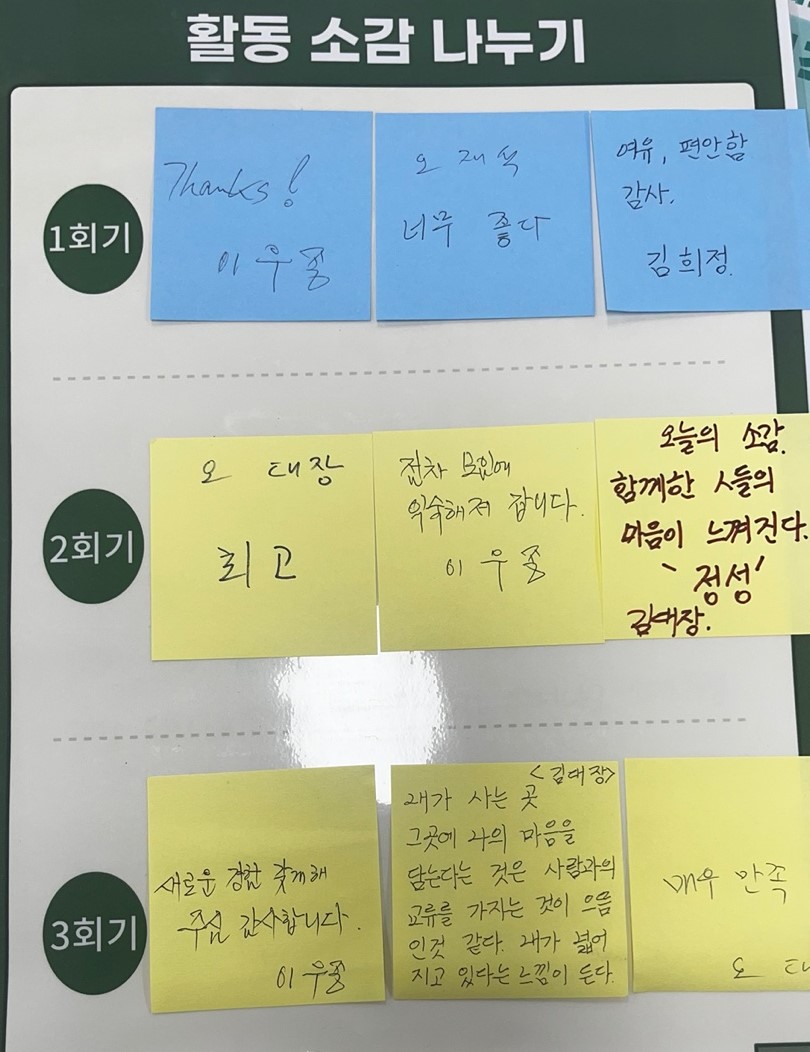 활동 소감 나누기
1회기
Thanks!
이우종
오재석
너무 좋다
여유, 편안함
감사.
김희정.
2회기
오 대장
최고
점차 모임에
익숙해져 갑니다.
이우종
오늘의 소감.
함께한 人들의
마음이 느껴진다.
'정성'
김대장.
3회기
새로운 경험 갖게해
주심 감사합니다.
이우종
<김대장>
내가 사는 곳
그곳에 나의 마음을
담는다는 것은 사람과의
교류를 가지는 것이 으뜸
인것 같다. 내가 넓어
지고 있다는 느낌이 든다.
매우 만족
오